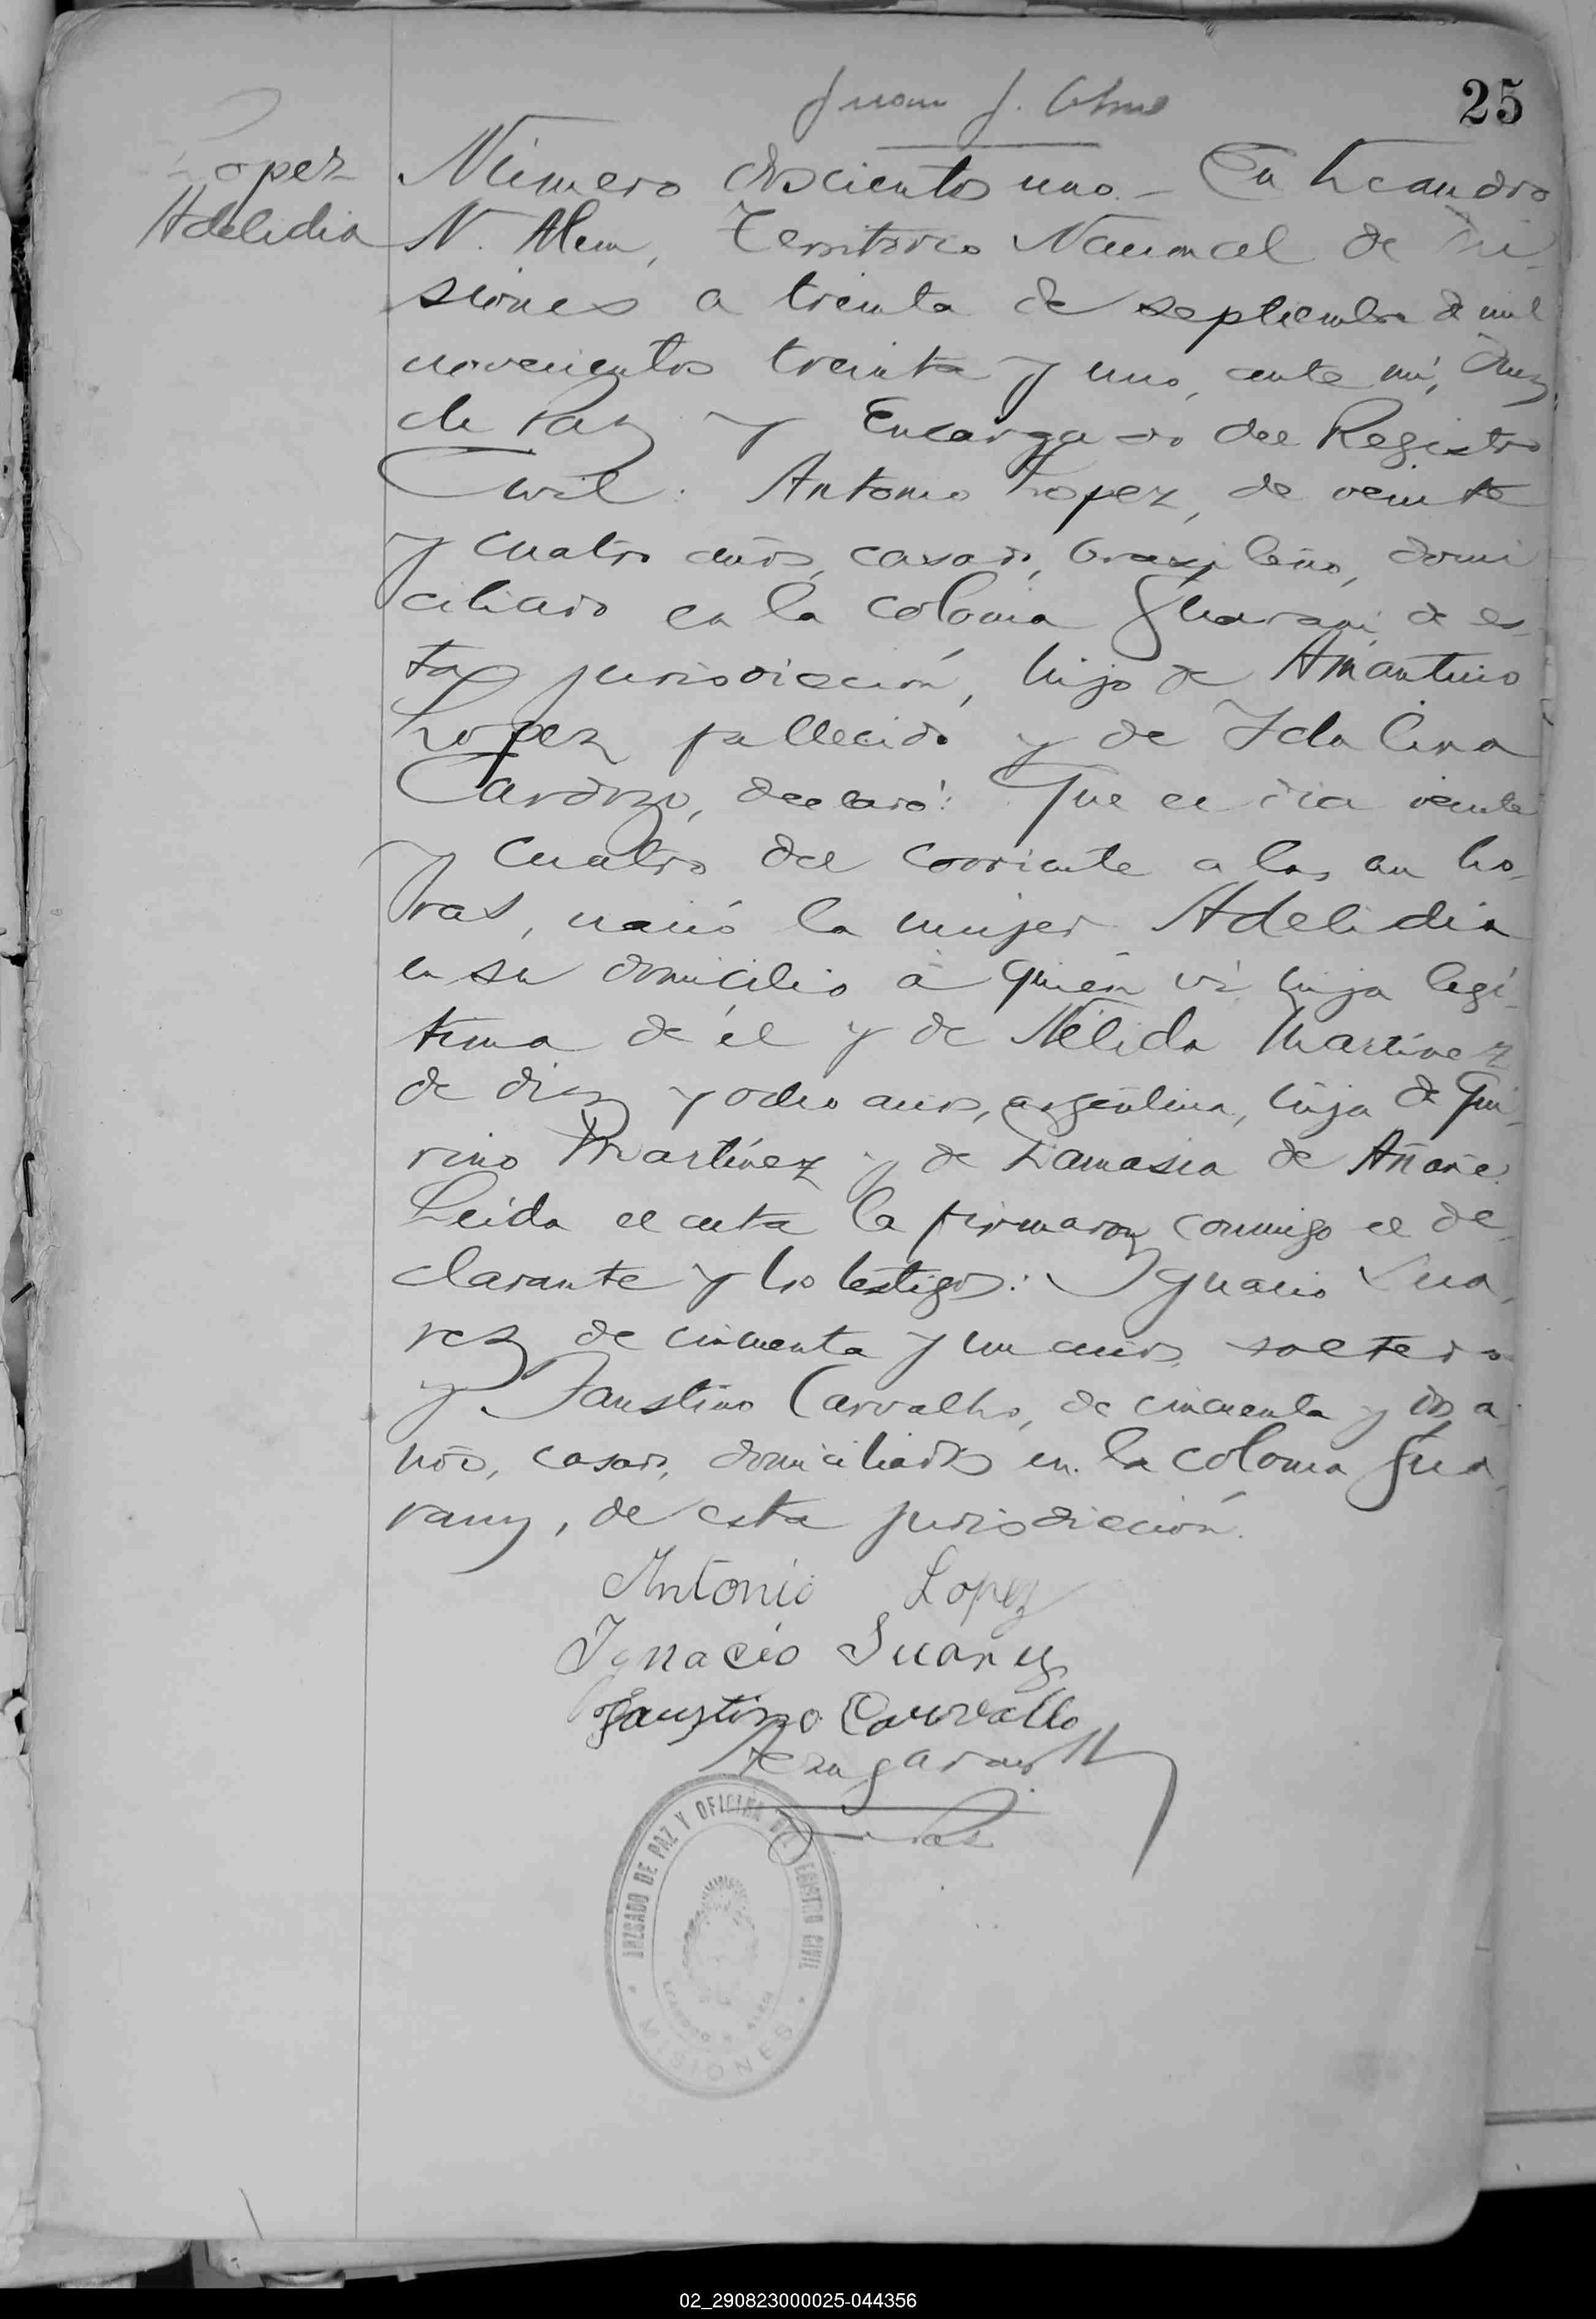 25
Lopez
Adelidia
Número doscientos uno.- En Leandro
N. Alem, Territorio Nacional de Mi-
siones a treinta de septiembre de mil
novecientos treinta y uno, ante mí, Juez
de Paz y Encargado del Registro
Civil: Antonio Lopez, de veinte
y cuatro años, casado, brasileño, domi
ciliado en la colonia Guarani, de es-
ta jurisdicción, hijo de Amantino
Lopez fallecido y de Idalina
Cardozo, declaró: Que el día veinte
y cuatro del corriente a las ho-
ras, nació la mujer Adelidia
en su domicilio a quién ví hija legí-
tima de él y de Nélida Martínez
de diez y ocho años, argentina, hija de Qui-
rino Martínez y de Damasia de
Leida el acta la firmaron conmigo el de-
clarante y los testigos: Ignacio Sua-
rez de cincuenta y un años, soltero
y Faustino Carvalho, de cincuenta y dos a-
ños, casado, domiciliados en la colonia Gua-
rany, de esta jurisdicción.
Antonio Lopez
Ignacio Suarez
Faustino Carvallo
JUZGADO DE PAZ Y OFICINA DEL REGISTRO CIVIL
LEANDRO N. ALEM
MISIONES
02_290823000025-044356